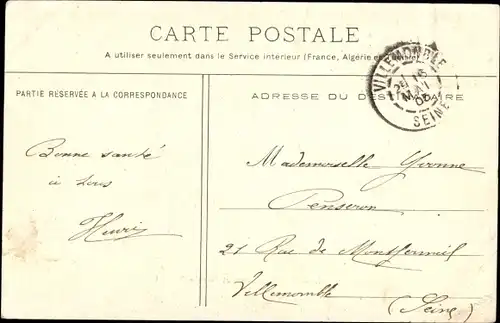 CARTE POSTALE
A utiliser seulement dans le Service intérieur (France, Algérie et
PARTIE RÉSERVÉE A LA CORRESPONDANCE
ADRESSE DU DESTINATAIRE
VILLEMOMBLE
16
MAI
05
SEINE
Bonne santé
à tous
Henri
Mademoiselle Yvonne
Penseron
21 Rue de Montfermeil
Villemomble
(Seine)